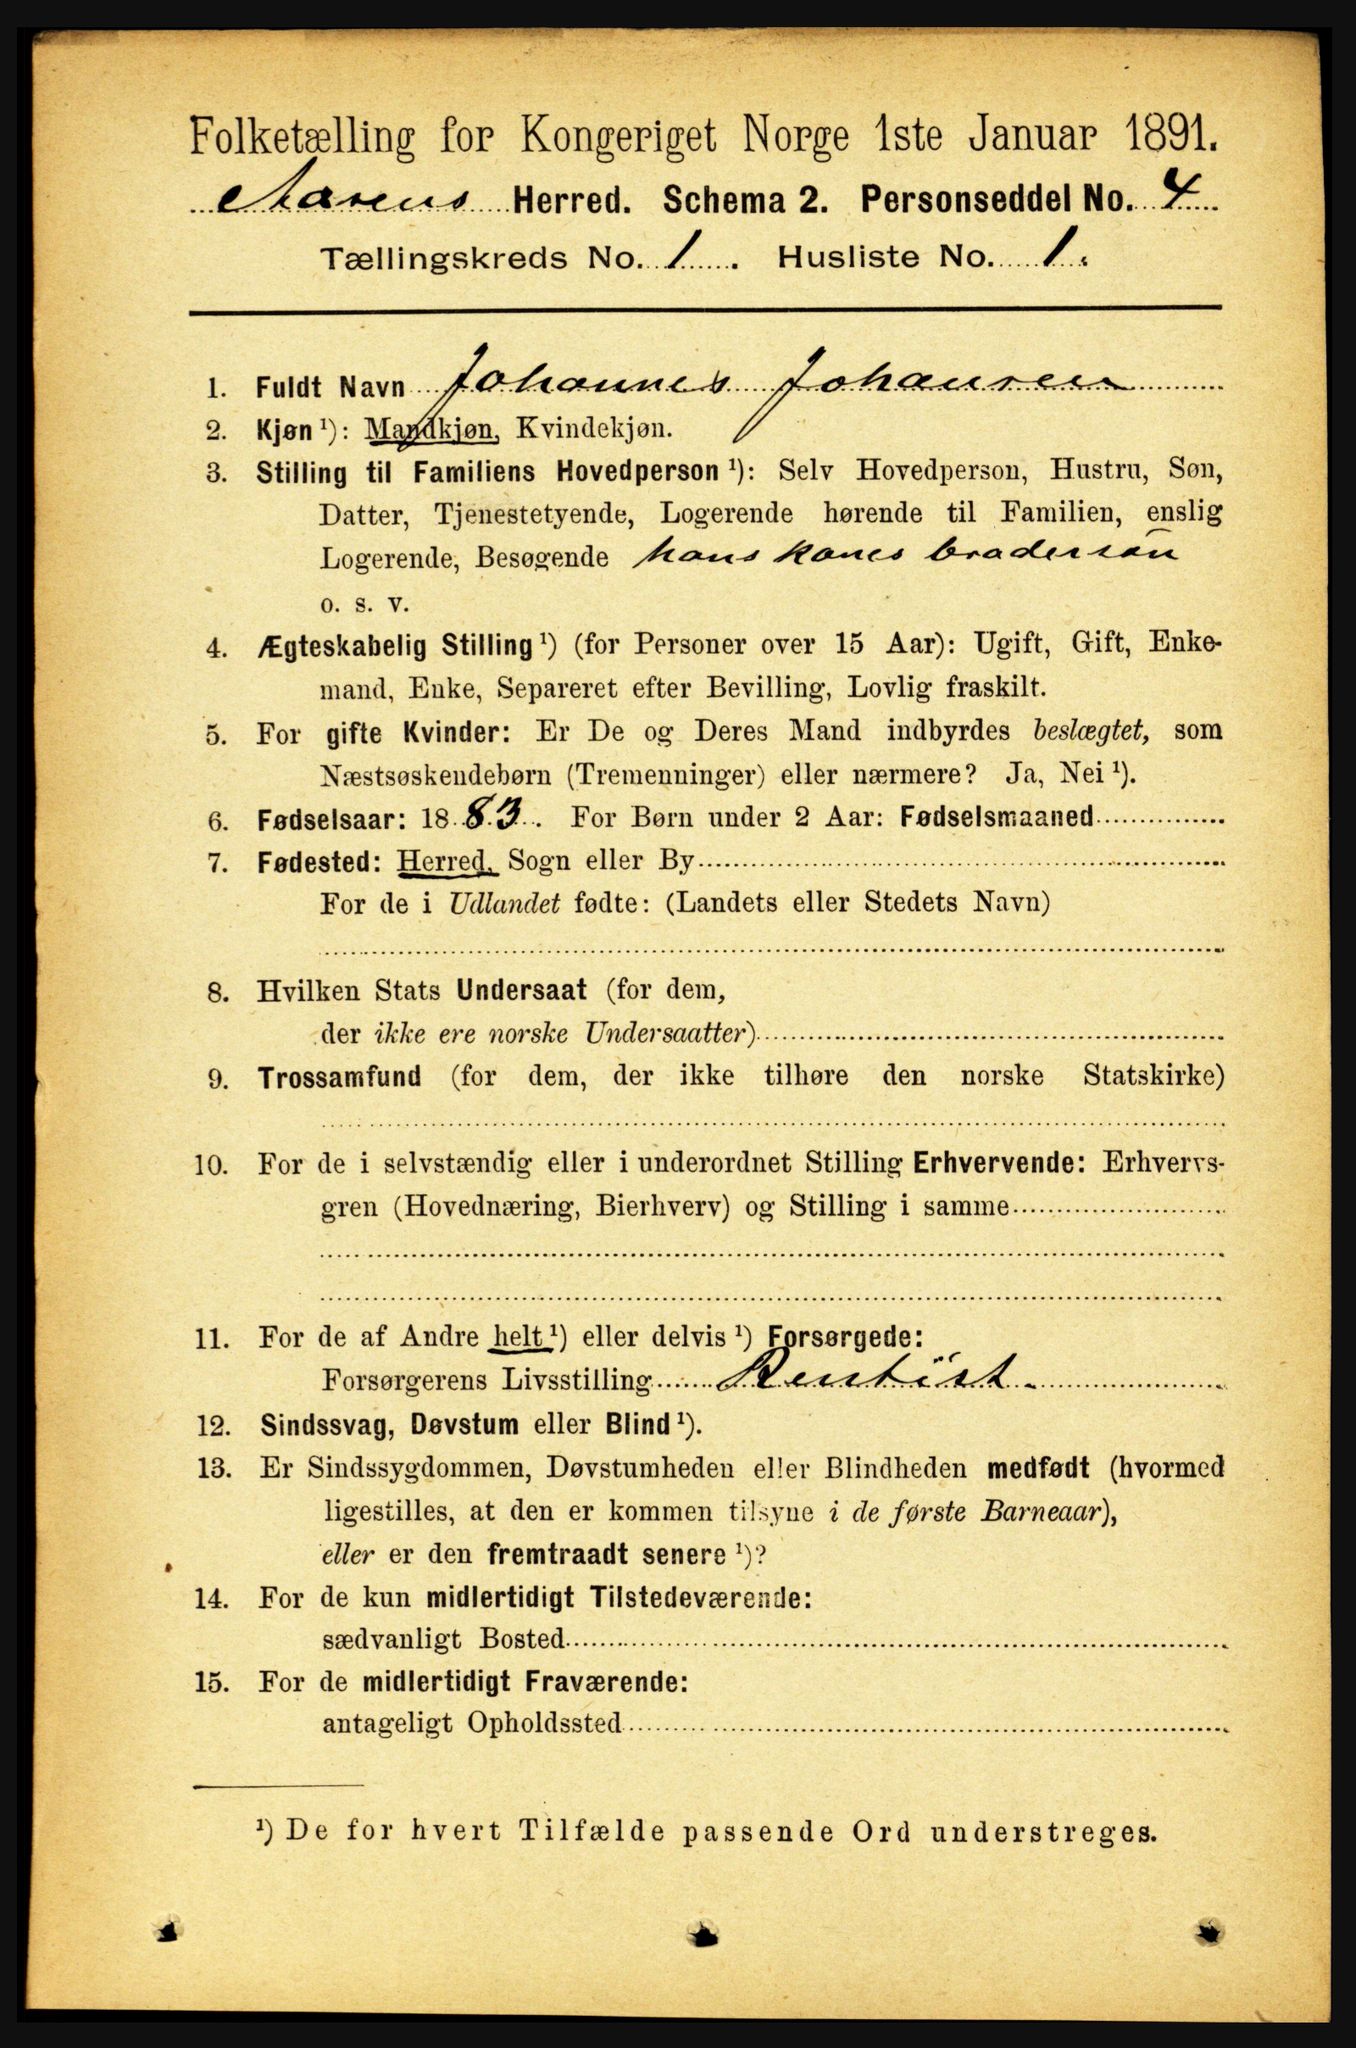 Folketælling for Kongeriget Norge 1ste Januar 1891.
Aasens Herred. Schema 2. Personseddel No. 4
Tællingskreds No. 1. Husliste No. 1.
1. Fuldt Navn Johannes Johansen
2. Kjøn ¹): Mandkjøn, Kvindekjøn.
3. Stilling til Familiens Hovedperson ¹): Selv Hovedperson, Hustru, Søn,
Datter, Tjenestetyende, Logerende hørende til Familien, enslig
Logerende, Besøgende hans kones brodersøn
o. s. v.
4. Ægteskabelig Stilling ¹) (for Personer over 15 Aar): Ugift, Gift, Enke-
mand, Enke, Separeret efter Bevilling, Lovlig fraskilt.
5. For gifte Kvinder: Er De og Deres Mand indbyrdes beslægtet, som
Næstsøskendebørn (Tremenninger) eller nærmere? Ja, Nei ¹).
6. Fødselsaar: 1883. For Børn under 2 Aar: Fødselsmaaned
7. Fødested: Herred, Sogn eller By
For de i Udlandet fødte: (Landets eller Stedets Navn)
8. Hvilken Stats Undersaat (for dem,
der ikke ere norske Undersaatter)
9. Trossamfund (for dem, der ikke tilhøre den norske Statskirke)
10. For de i selvstændig eller i underordnet Stilling Erhvervende: Erhvervs-
gren (Hovednæring, Bierhverv) og Stilling i samme
11. For de af Andre helt ¹) eller delvis ¹) Forsørgede:
Forsørgerens Livsstilling Rentist.
12. Sindssvag, Døvstum eller Blind ¹).
13. Er Sindssygdommen, Døvstumheden eller Blindheden medfødt (hvormed
ligestilles, at den er kommen tilsyne i de første Barneaar),
eller er den fremtraadt senere ¹)?
14. For de kun midlertidigt Tilstedeværende:
sædvanligt Bosted
15. For de midlertidigt Fraværende:
antageligt Opholdssted
¹) De for hvert Tilfælde passende Ord understreges.